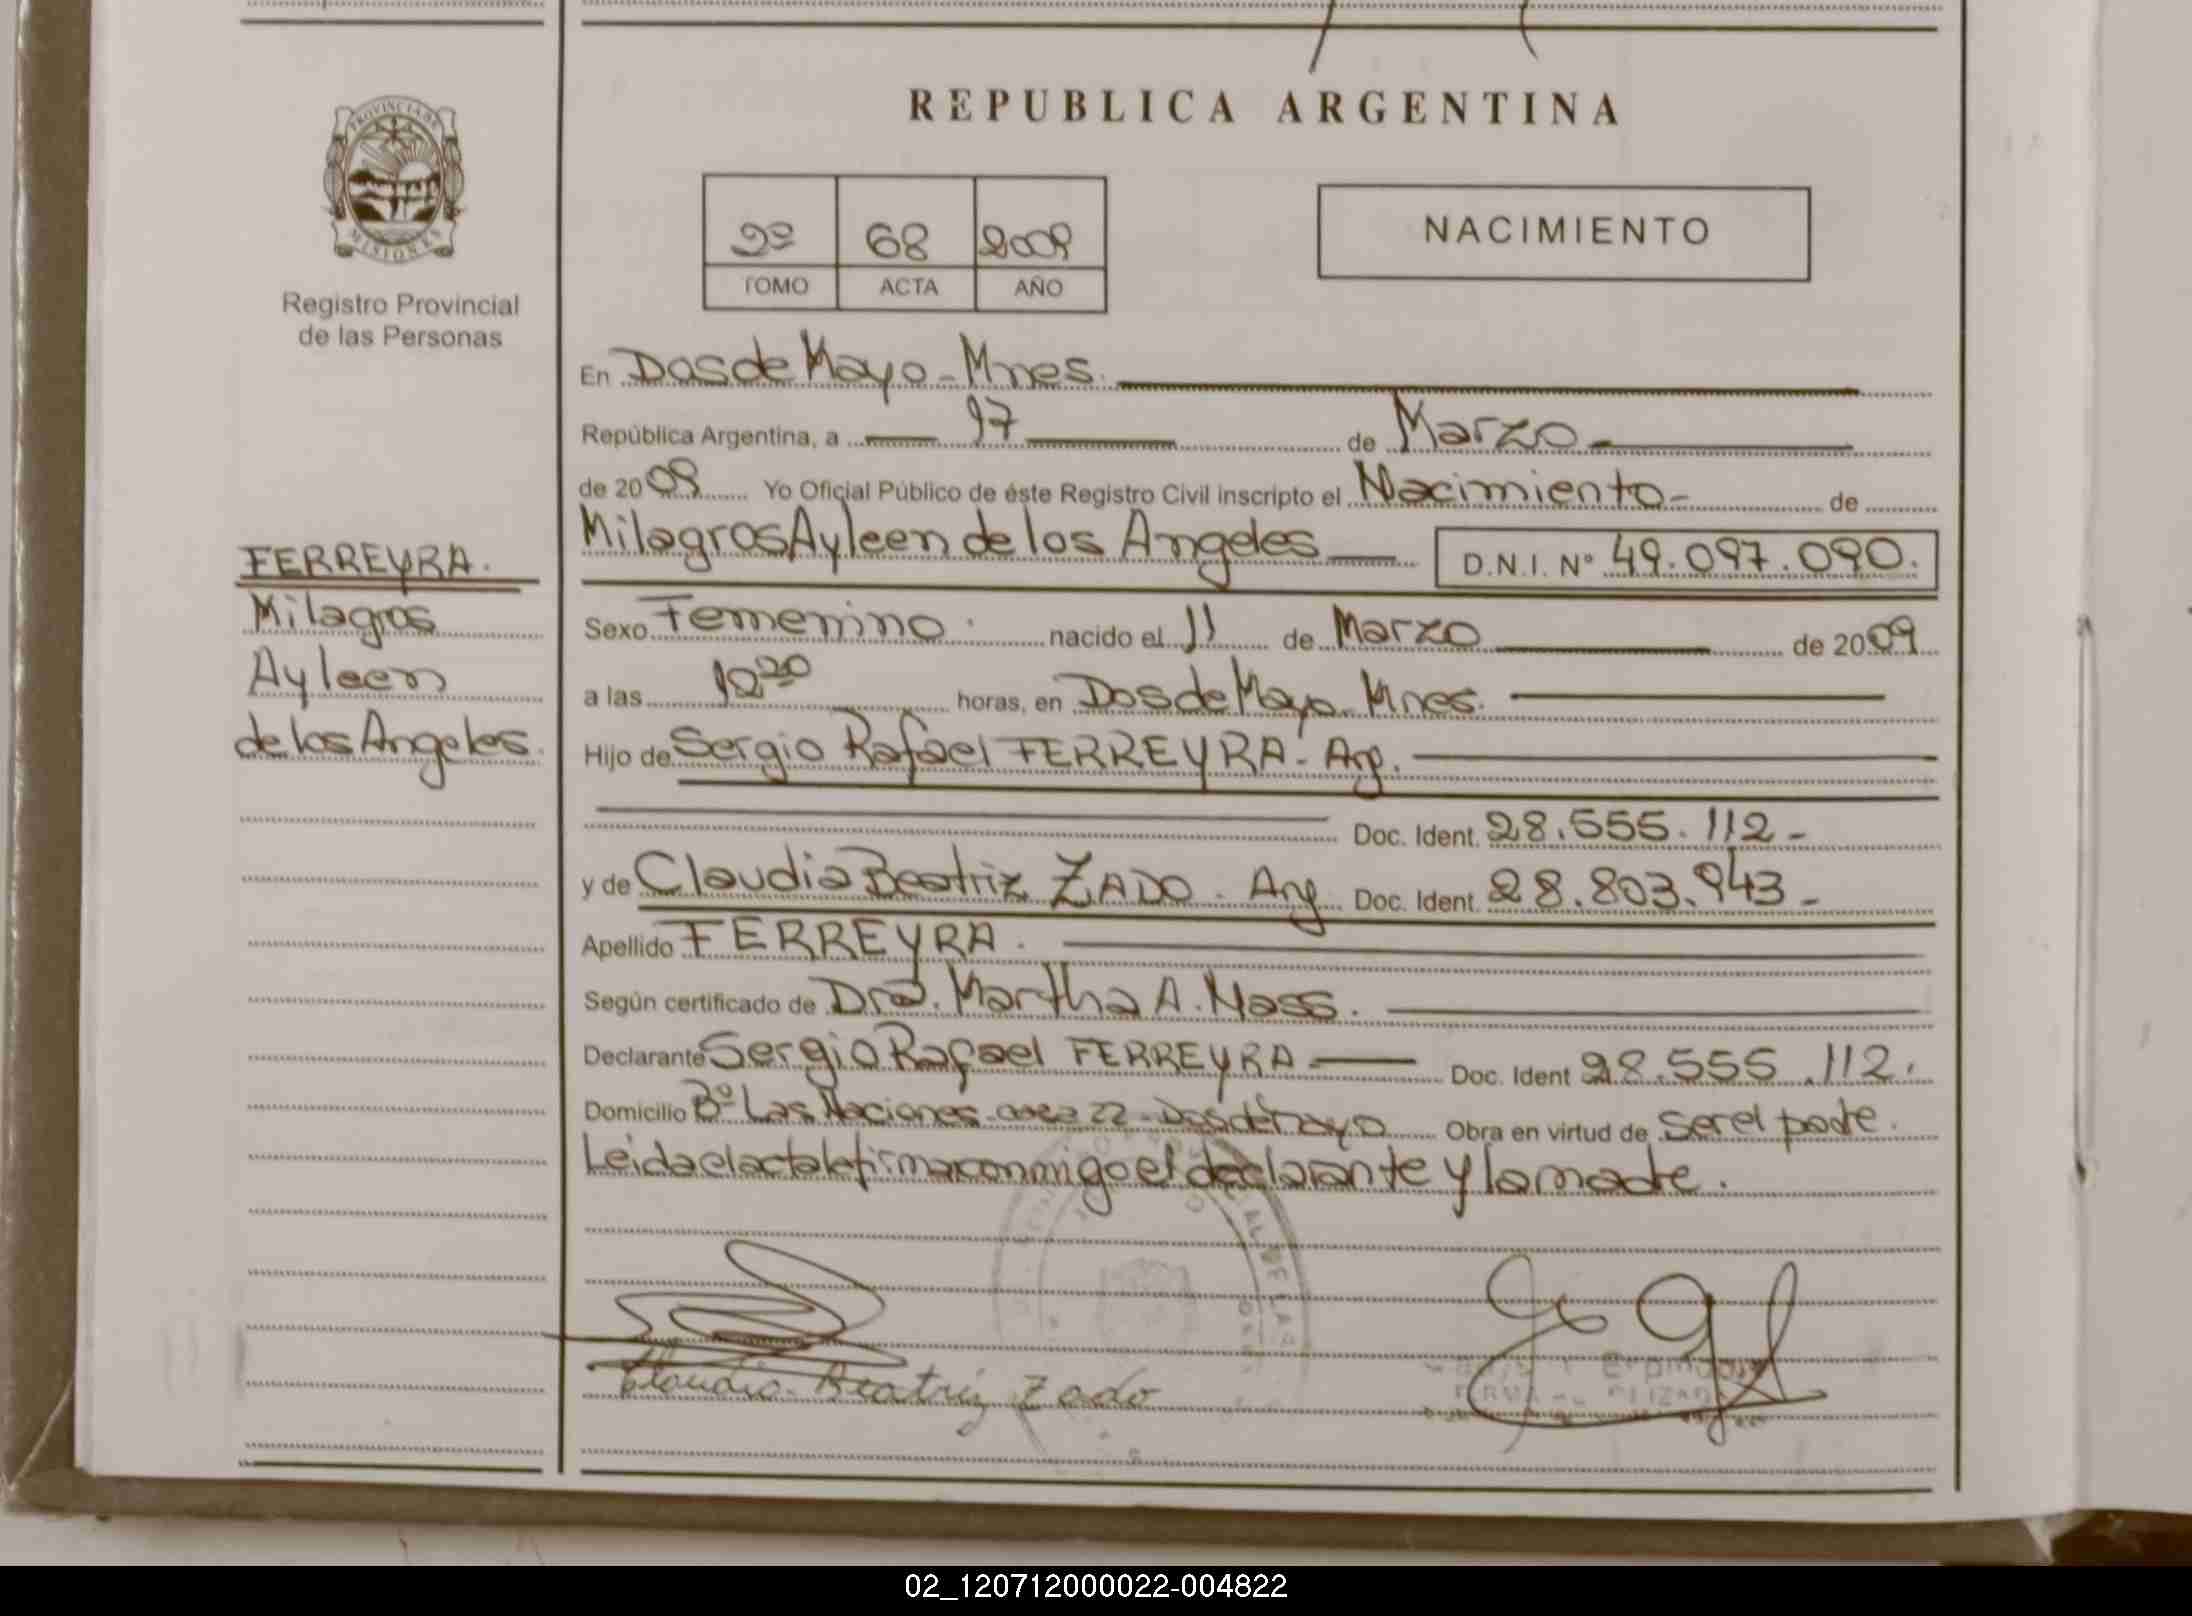 REPUBLICA ARGENTINA
PROVINCIA DE
MISIONES
Registro Provincial
de las Personas
2º 68 2009
TOMO ACTA AÑO
NACIMIENTO
En Dos de Mayo - Mnes.
República Argentina, a 17 de Marzo
de 2009 Yo Oficial Público de éste Registro Civil inscripto el Nacimiento - de
Milagros Ayleen de los Angeles D.N.I. Nº 49.097.090.
FERREYRA.
Milagros
Ayleen
de los Angeles.
Sexo Femenino. nacido el 11 de Marzo de 2009
a las 12 20 horas, en Dos de Mayo - Mnes.
Hijo de Sergio Rafael FERREYRA - Arg.
Doc. Ident. 28.555.112 -
y de Claudia Beatriz ZADO. Arg Doc. Ident. 28.803.943 -
Apellido FERREYRA.
Según certificado de Dra. Martha A. Mass.
Declarante Sergio Rafael FERREYRA Doc. Ident 28.555.112.
Domicilio Bº Las Naciones casa 22 - Dos de Mayo Obra en virtud de ser el padre.
Leida el acta la firma conmigo el declarante y la madre.
Claudia Beatriz Zado
02_120712000022-004822